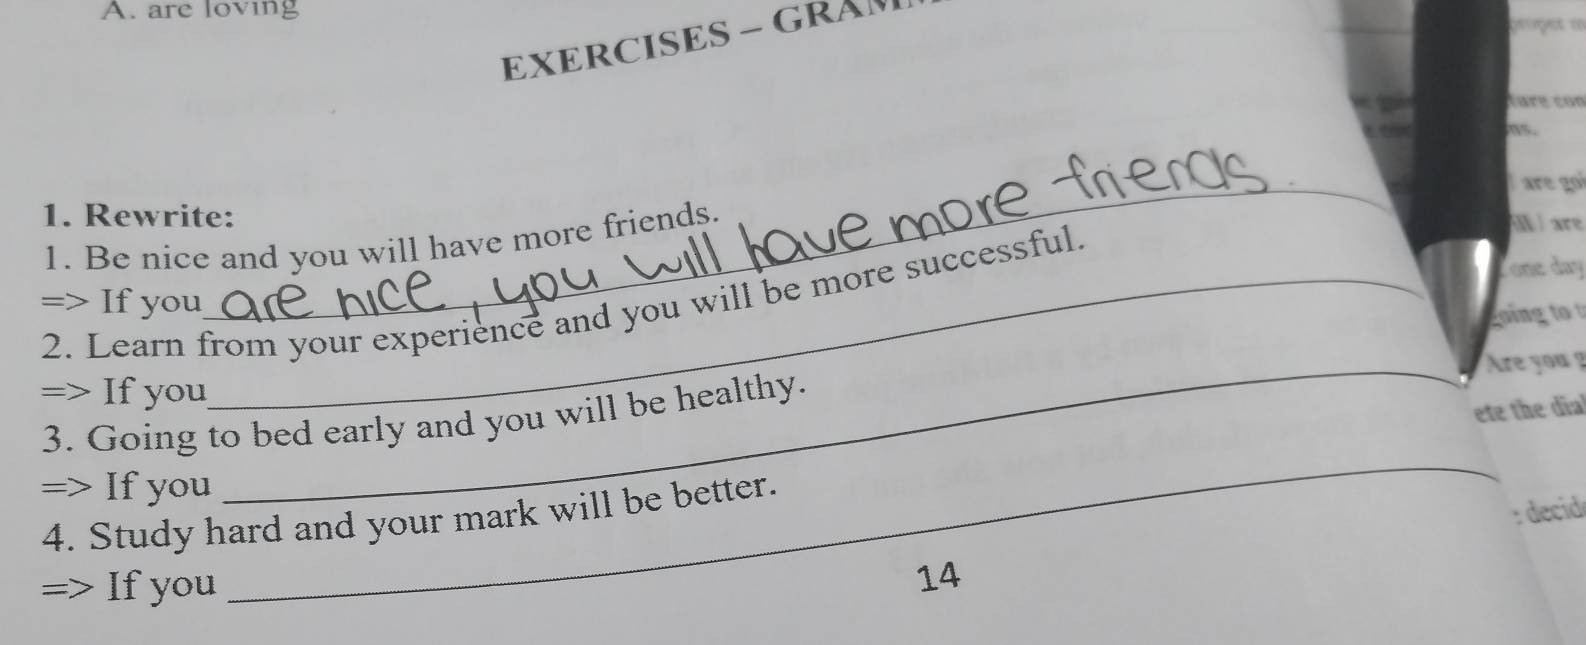 A. are loving
EXERCISES – GRAM
1. Rewrite:
1. Be nice and you will have more friends.
=> If you are nice, you will have more friends.
2. Learn from your experience and you will be more successful.
=> If you
3. Going to bed early and you will be healthy.
=> If you
4. Study hard and your mark will be better.
=> If you
14
ture con
ns.
are goi
ill / are
one day
going to t
Are you g
ete the dial
: decide